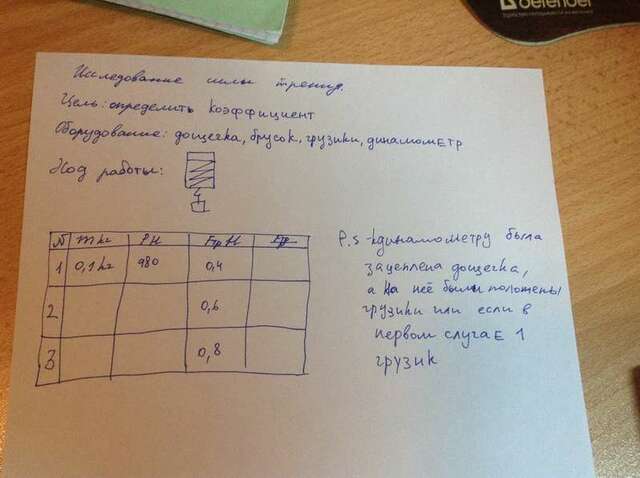 defender
Исследование силы трения.
Цель: определить коэффициент
Оборудование: дощечка, брусок, грузики, динамометр
Ход работы:
N m кг P H Fтр H Fтр
1 0,1 кг 980 0,4
2 0,6
3 0,8
P.S - к динамометру была
зацеплена дощечка,
а на неё были положены
грузики или если в
первом случае 1
грузик